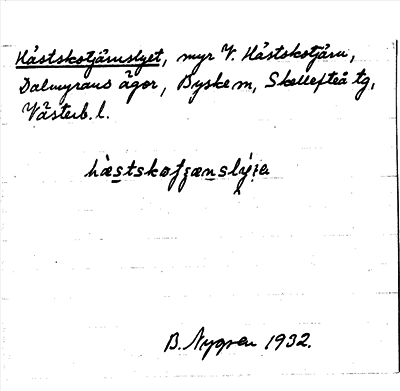 Hästskotjärnslyet, myr V. Hästskotjärn,
Dalmyrans ägor, Byske sn, Skellefteå tg,
Västerb. l.
B. Nygren 1932.